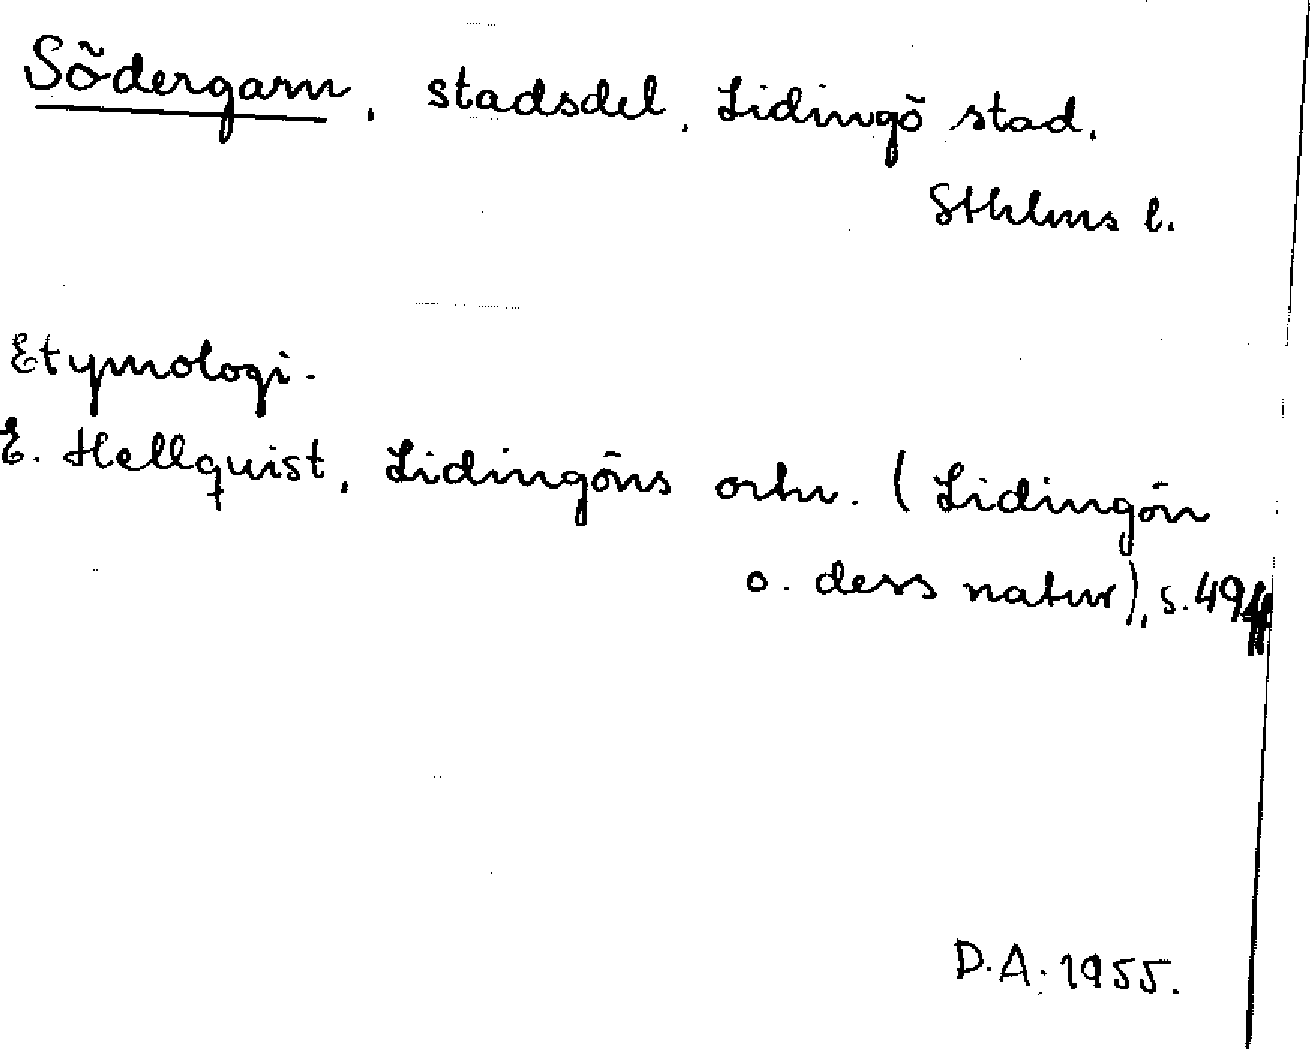 Södergarn, stadsdel, Lidingö stad,
Sthlms l.
Etymologi.
E. Hellquist, Lidingöns ortn. (Lidingön
o. dess natur), s. 494
D.A. 1955.